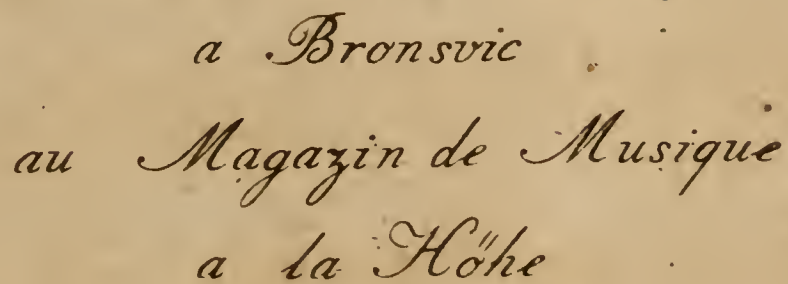 a Bronsvic
au Magazin de Musique
a la Höhe